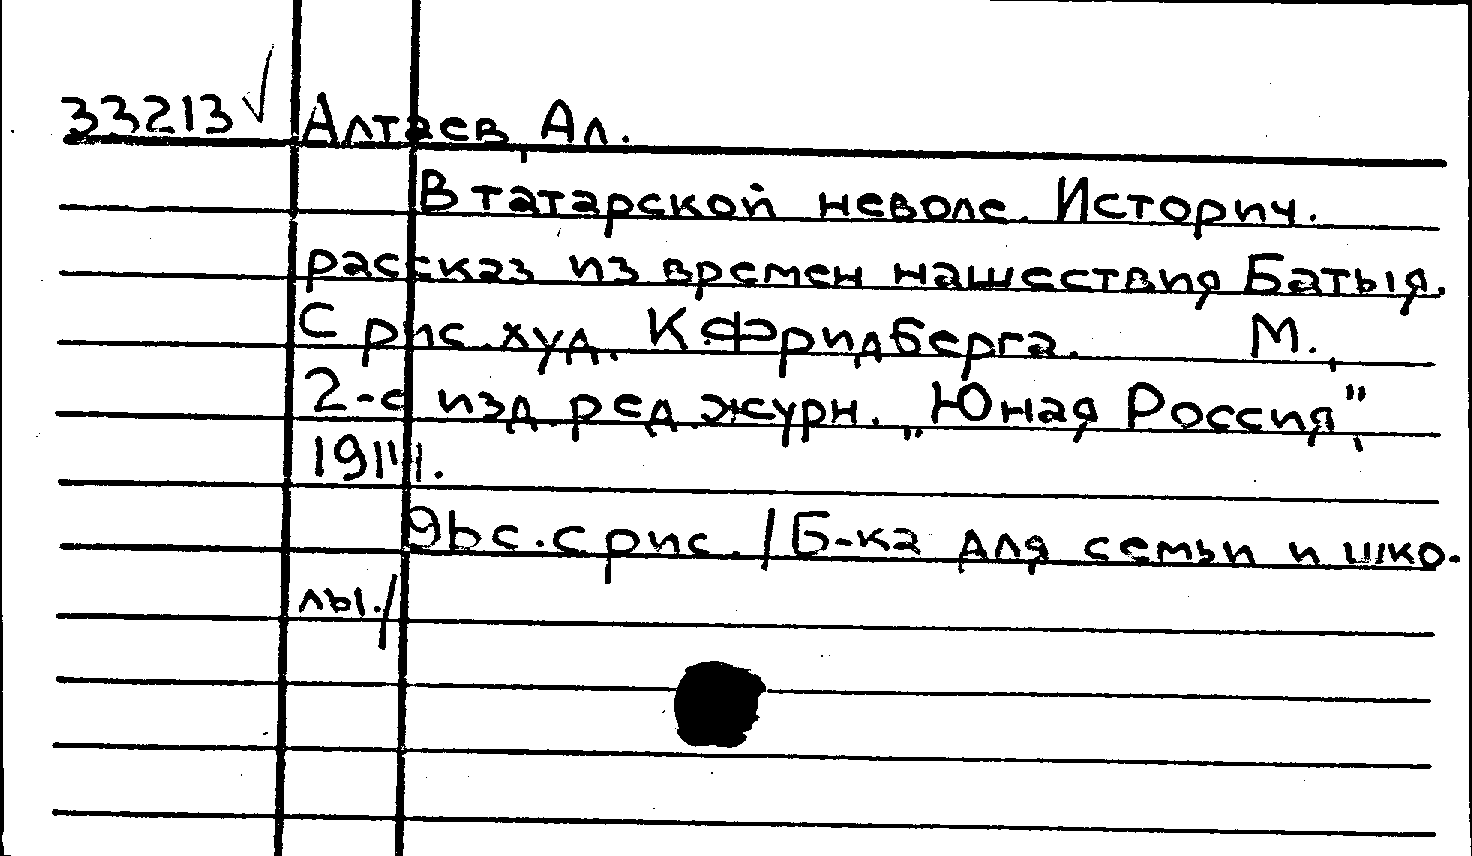 33213 √ Алтаев, Ал.
В татарской неволе. Историч.
рассказ из времен нашествия Батыя.
С рис. худ. К.Фридберга. М.,
2-е изд. ред. журн. „Юная Россия",
96с. с рис. /Б-ка для семьи и шко-
лы./